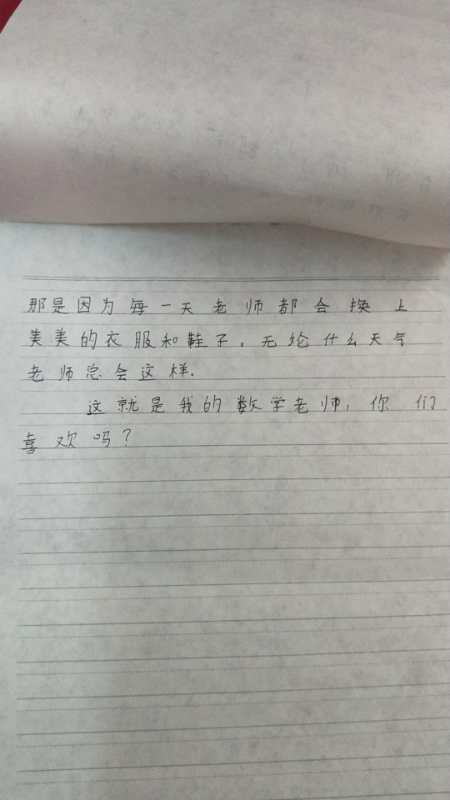 那是因为每一天老师都会换上
美美的衣服和鞋子,无论什么天气
老师总会这样.
这就是我的数学老师,你们
喜欢吗?